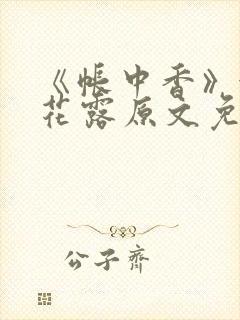 《帐中香》
花露原文免
公子齐